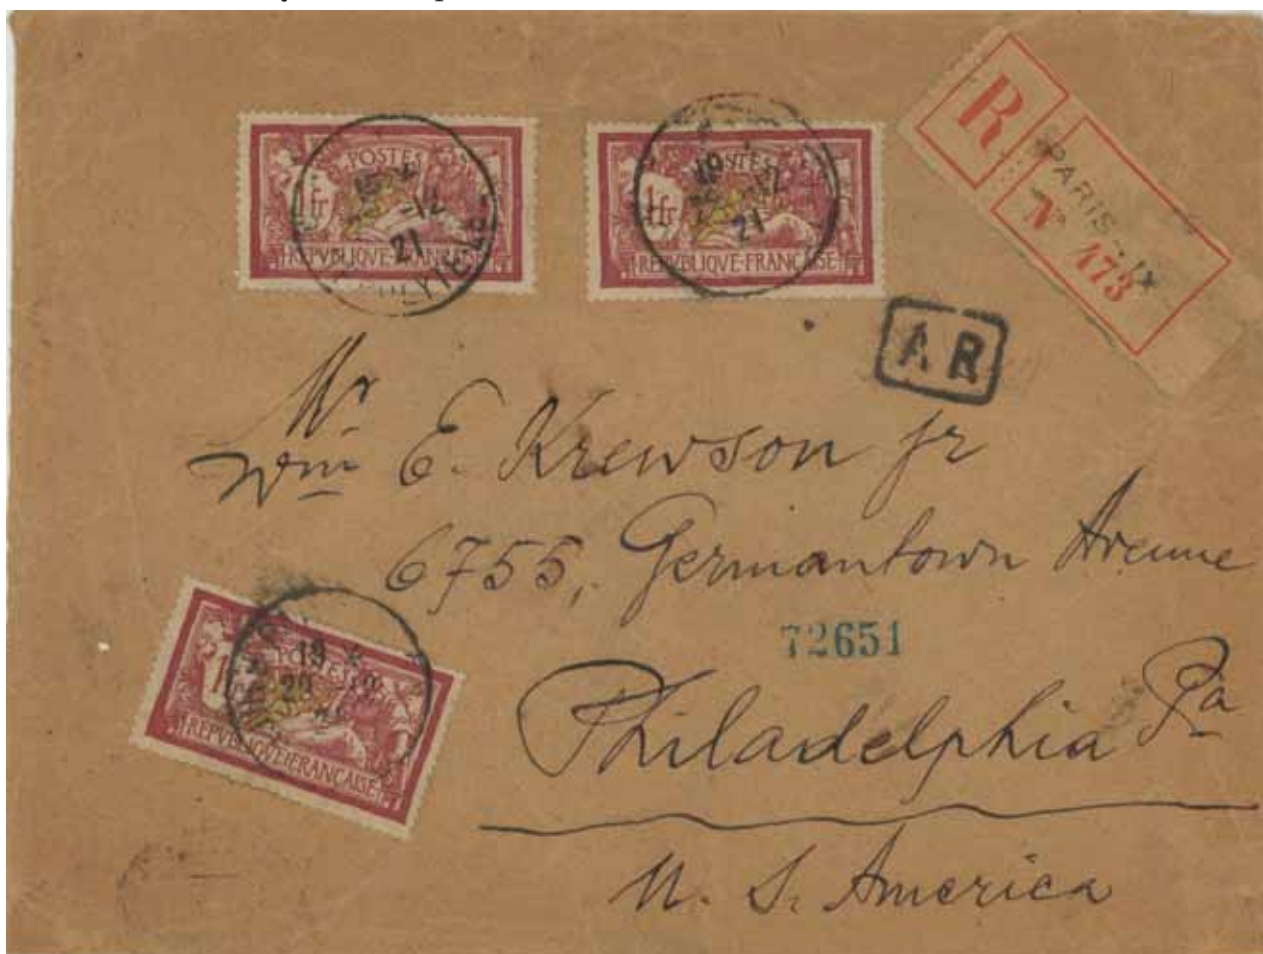 POSTES
1fr
REPVBLIQVE·FRANÇAISE
-12
21
POSTES
1fr
REPVBLIQVE·FRANÇAISE
19
-12
21
R
PARIS-IX
No 473
AR
Mr
Wm E. Krewson jr
6755, Germantown Avenue
72651
Philadelphia Pa
U. S. America
POSTES
1fr
REPVBLIQVE·FRANÇAISE
19 *